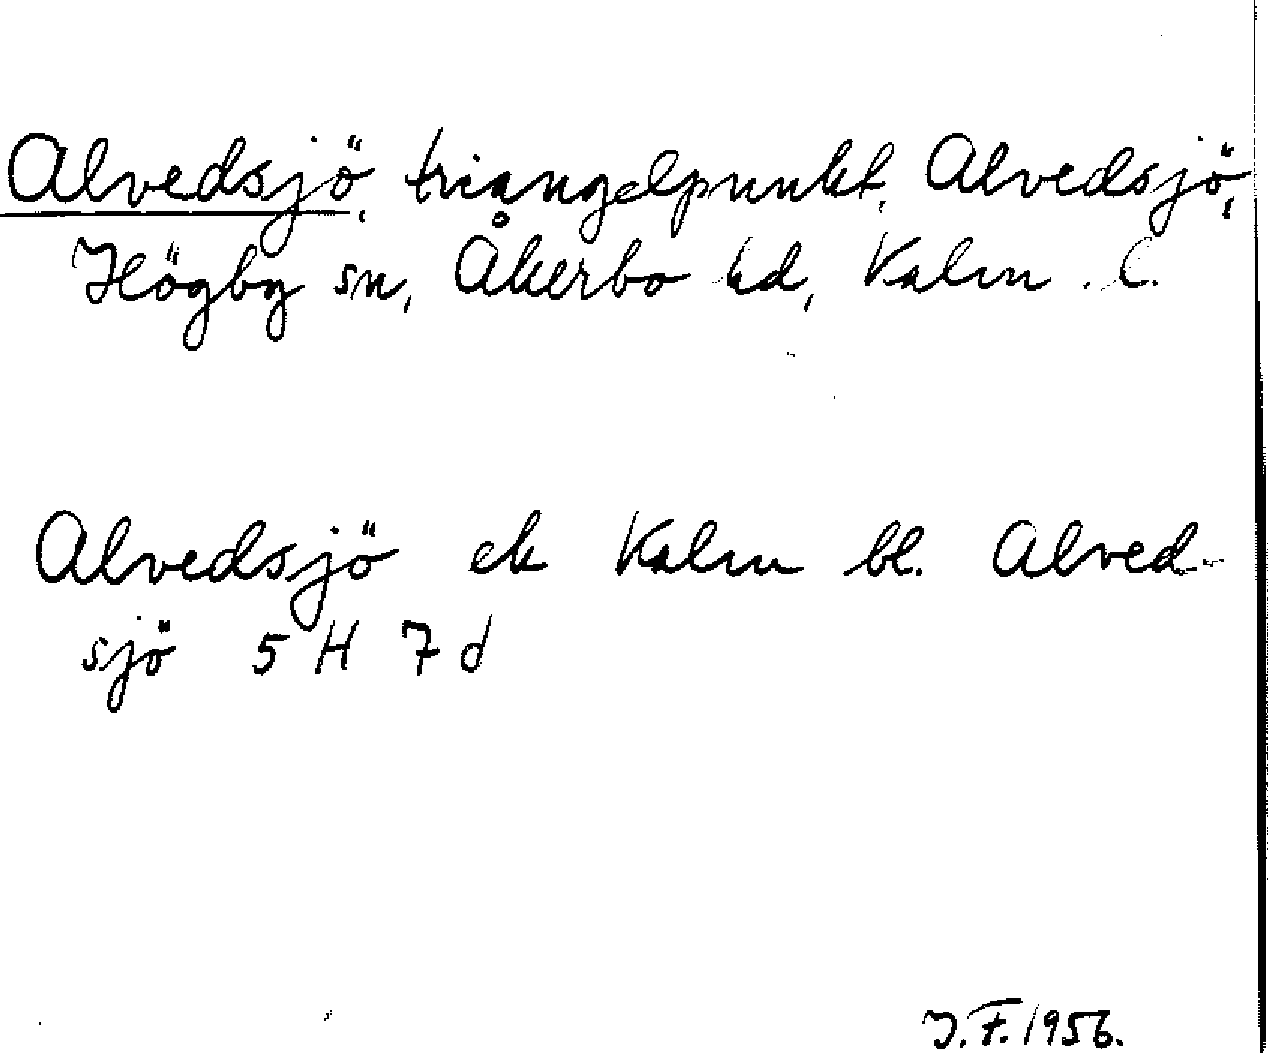 Alvedsjö, triangelpunkt, Alvedsjö,
Högby sn, Åkerbo hd, Kalm. l.
Alvedsjö ek Kalm bl. Alved-
sjö 5 H 7 d
J.F. 1956.